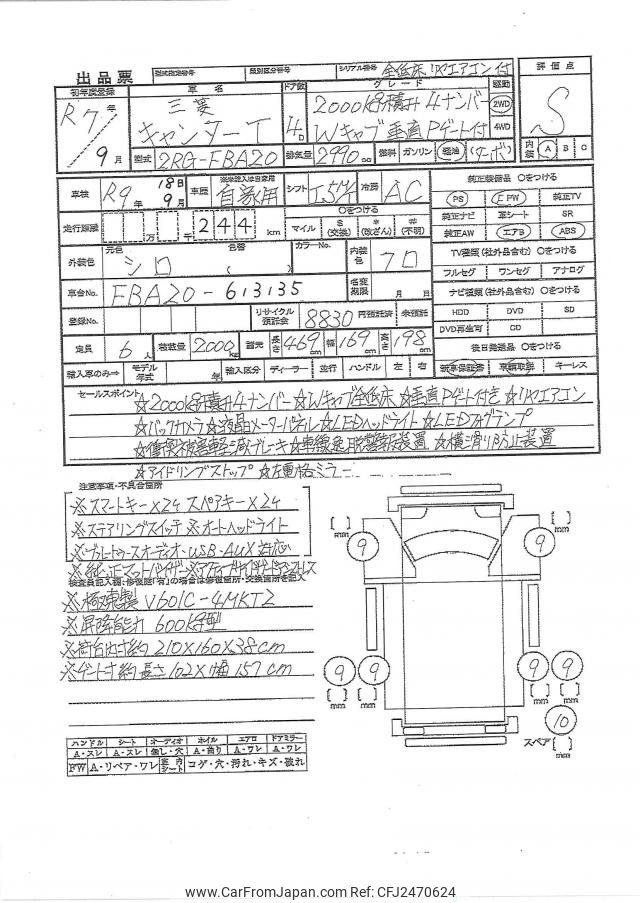 出品票
型式指定番号 類別区分番号 シリアル番号 全低床 リヤエアコン付
初年度登録 車名 ドア数 グレード 駆動 評価点
R7年 9月 三菱 キャンターT 4D
2000kg積載 4ナンバー 2WD
Wキャブ垂直Pゲート付 4WD
S
型式 2RG-FBA20 排気量 2990cc 燃料 ガソリン 軽油 (ターボ) 内装 A B C
車検 R9年 18日 9月 車歴 自家用 シフト I5M 冷房 AC
走行距離 万 千 244 km
○をつける
マイル $(交換) *(改ざん) #(不明)
外装色 元色 シロ 色替 ( ) カラーNo. 内装色 クロ
車台No. FBA20-613135 名変期限 月 日
登録No. リサイクル預託金 8830 円預託済 未預託
定員 6人 積載量 2000kg 諸元 長さ 469cm 幅 169cm 高さ 198cm
輸入車のみ→ モデル年式 年 輸入区分 ディーラー 並行 ハンドル 左 右
純正装備品 ○をつける
PS PW 純正TV
純正ナビ 革シート SR
純正AW エアB ABS
TV種類(社外品含む) ○をつける
フルセグ ワンセグ アナログ
ナビ種類(社外品含む) ○をつける
HDD DVD SD
DVD再生可 CD
後日発送品 ○をつける
新車保証書 取説 キーレス
セールスポイント
☆2000kg積載4ナンバー☆Wキャブ全低床☆垂直Pゲート付き☆リヤエアコン
☆バックカメラ☆液晶メーターパネル☆LEDヘッドライト☆LEDフォグランプ
☆衝突被害軽減ブレーキ☆車線逸脱警報装置☆横滑り防止装置
☆アイドリングストップ☆左電格ミラー
注意事項・不具合箇所
※スマートキー×2ケ スペアキー×2ケ
※ステアリングスイッチ※オートヘッドライト
※ブルートゥースオーディオ・USB・AUX対応
※純正マットバイザー
検査員記入欄:修復歴「有」の場合は修復箇所・交換箇所を記入
※極東製V601C-4MKT2
※昇降能力600kg型
※荷台内寸約210×160×38cm
※ゲート寸約長さ102×幅157cm
9 9
[ ]mm [ ]mm
9 9 9 9
[ ]mm [ ]mm [ ]mm [ ]mm
10
スペア [ ]mm
ハンドル シート オーディオ ホイル エアロ ドアミラー
A・スレ A・スレ 無し・穴 A・曲り A・ワレ A・ワレ
FW A・リペア・ワレ 室内シート コゲ・穴・汚れ・キズ・破れ
www.CarFromJapan.com Ref: CFJ2470624